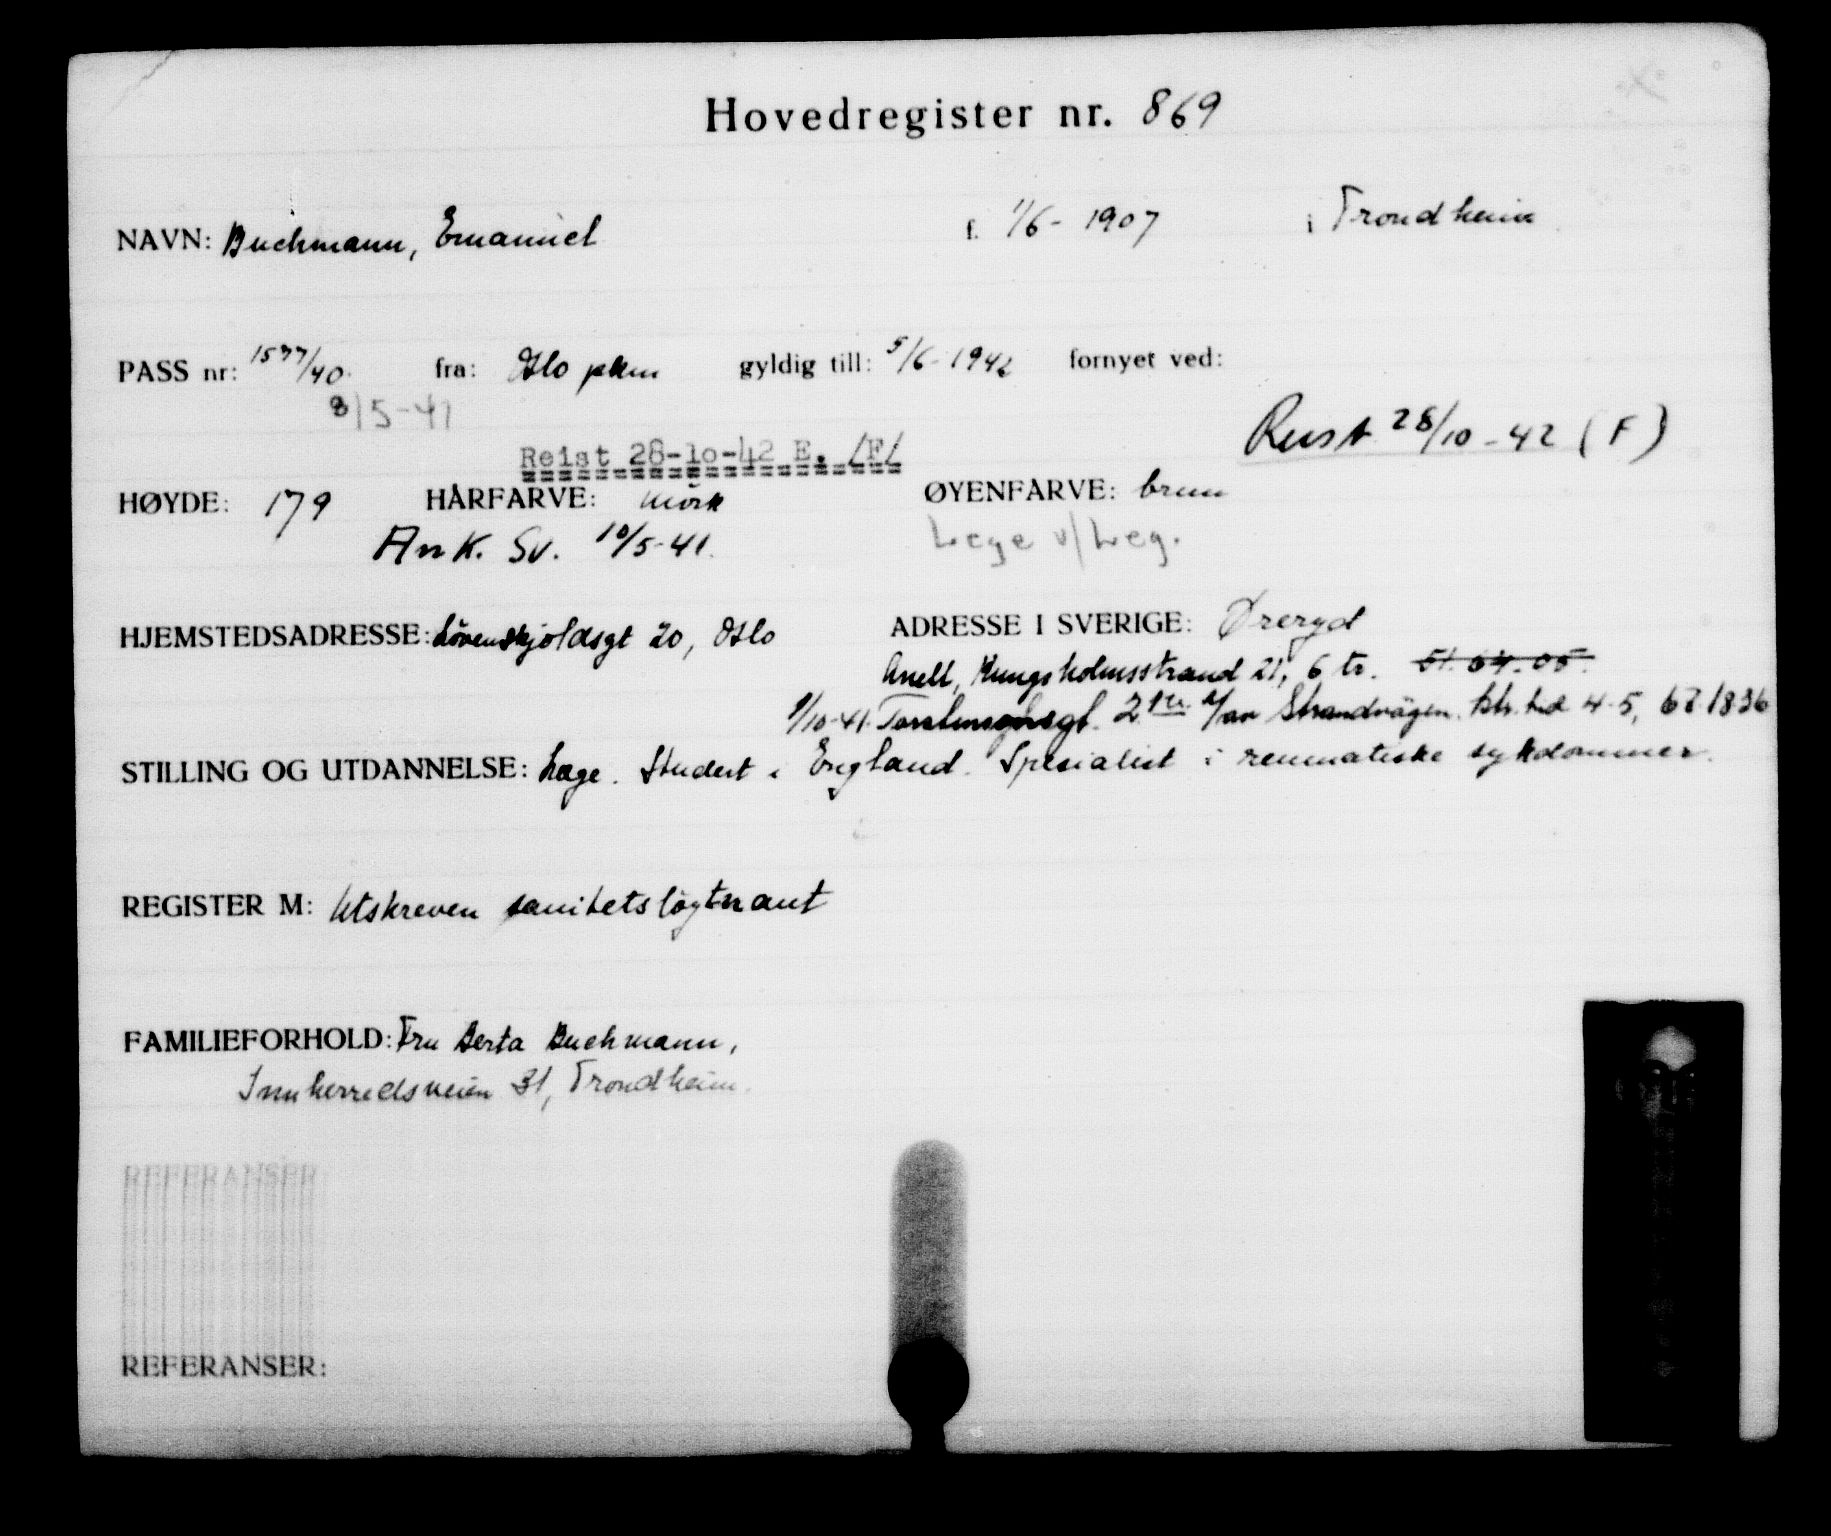 Hovedregister nr. 869
NAVN: Buchmann, Emanuel f. 1/6 - 1907 i Trondheim
PASS nr: 1577/40. fra: Oslo pkm gyldig till: 5/6 - 1942 fornyet ved:
8/5-41
Reist 28/10-42 (F)
Reist 28-10-42 E. /F/
HØYDE: 179 HÅRFARVE: mörk ØYENFARVE: brun
Ank. Sv. 10/5-41. Lege v/Leg.
HJEMSTEDSADRESSE: Lövenskjoldsgt 20, Oslo ADRESSE I SVERIGE: Øreryd
Anell, Kungsholmsstrand 21, 6 tr. 51.64.05.
1/10-41. 2 Strandvägen. 4-5, 67 1836
STILLING OG UTDANNELSE: Læge. Student i England. Spesialist i reumatiske sykdommer.
REGISTER M: Utskreven sanitetsløytnant
FAMILIEFORHOLD: Fru Berta Buchmann,
Innherredsveien 31, Trondheim.
REFERANSER
REFERANSER: